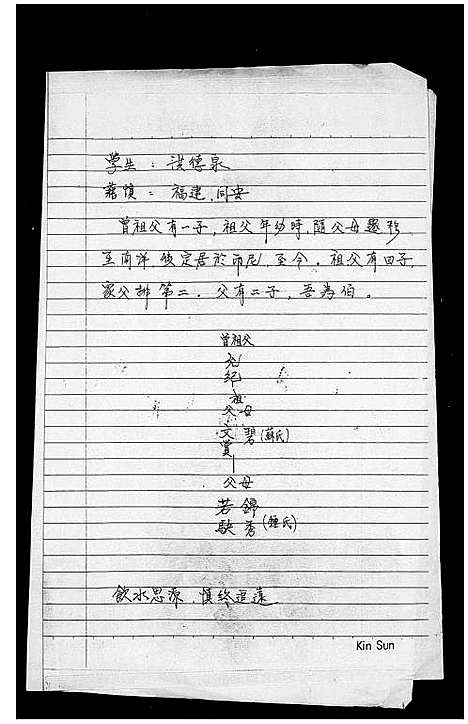 學生：洪德泉
籍貫：福建，同安
曾祖父有一子，祖父年幼時，隨父母遷移
至南洋，後定居於印尼，至今。祖父有四子，
家父排第二．父有二子，吾為伯。
曾祖父
允
紀
祖
父母
文 碧(蘇氏)
賞
父母
若 錦
駃 香(鍾氏)
飲水思源，慎終追遠
Kin Sun